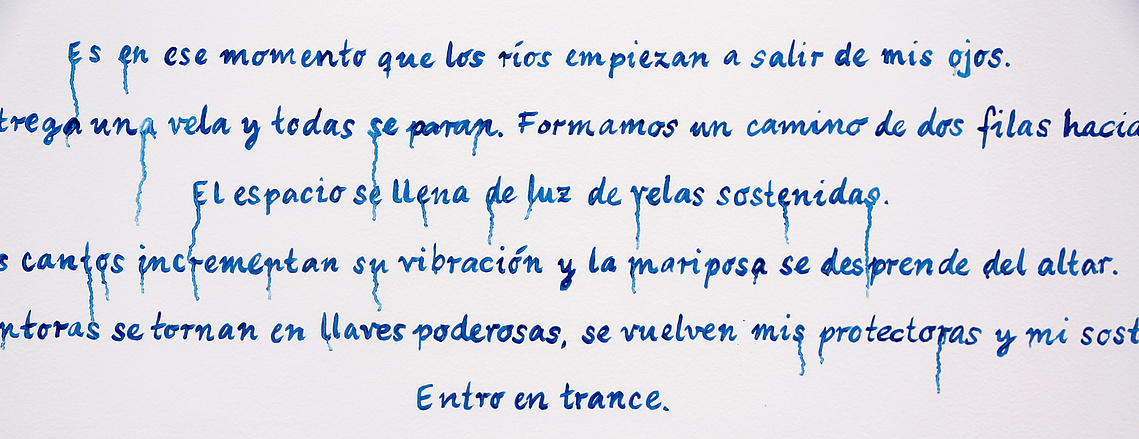 Es en ese momento que los ríos empiezan a salir de mis ojos.
trega una vela y todas se paran. Formamos un camino de dos filas hacia
El espacio se llena de luz de velas sostenidas.
s cantos incrementan su vibración y la mariposa se desprende del altar.
ntoras se tornan en llaves poderosas, se vuelven mis protectoras y mi sost
Entro en trance.